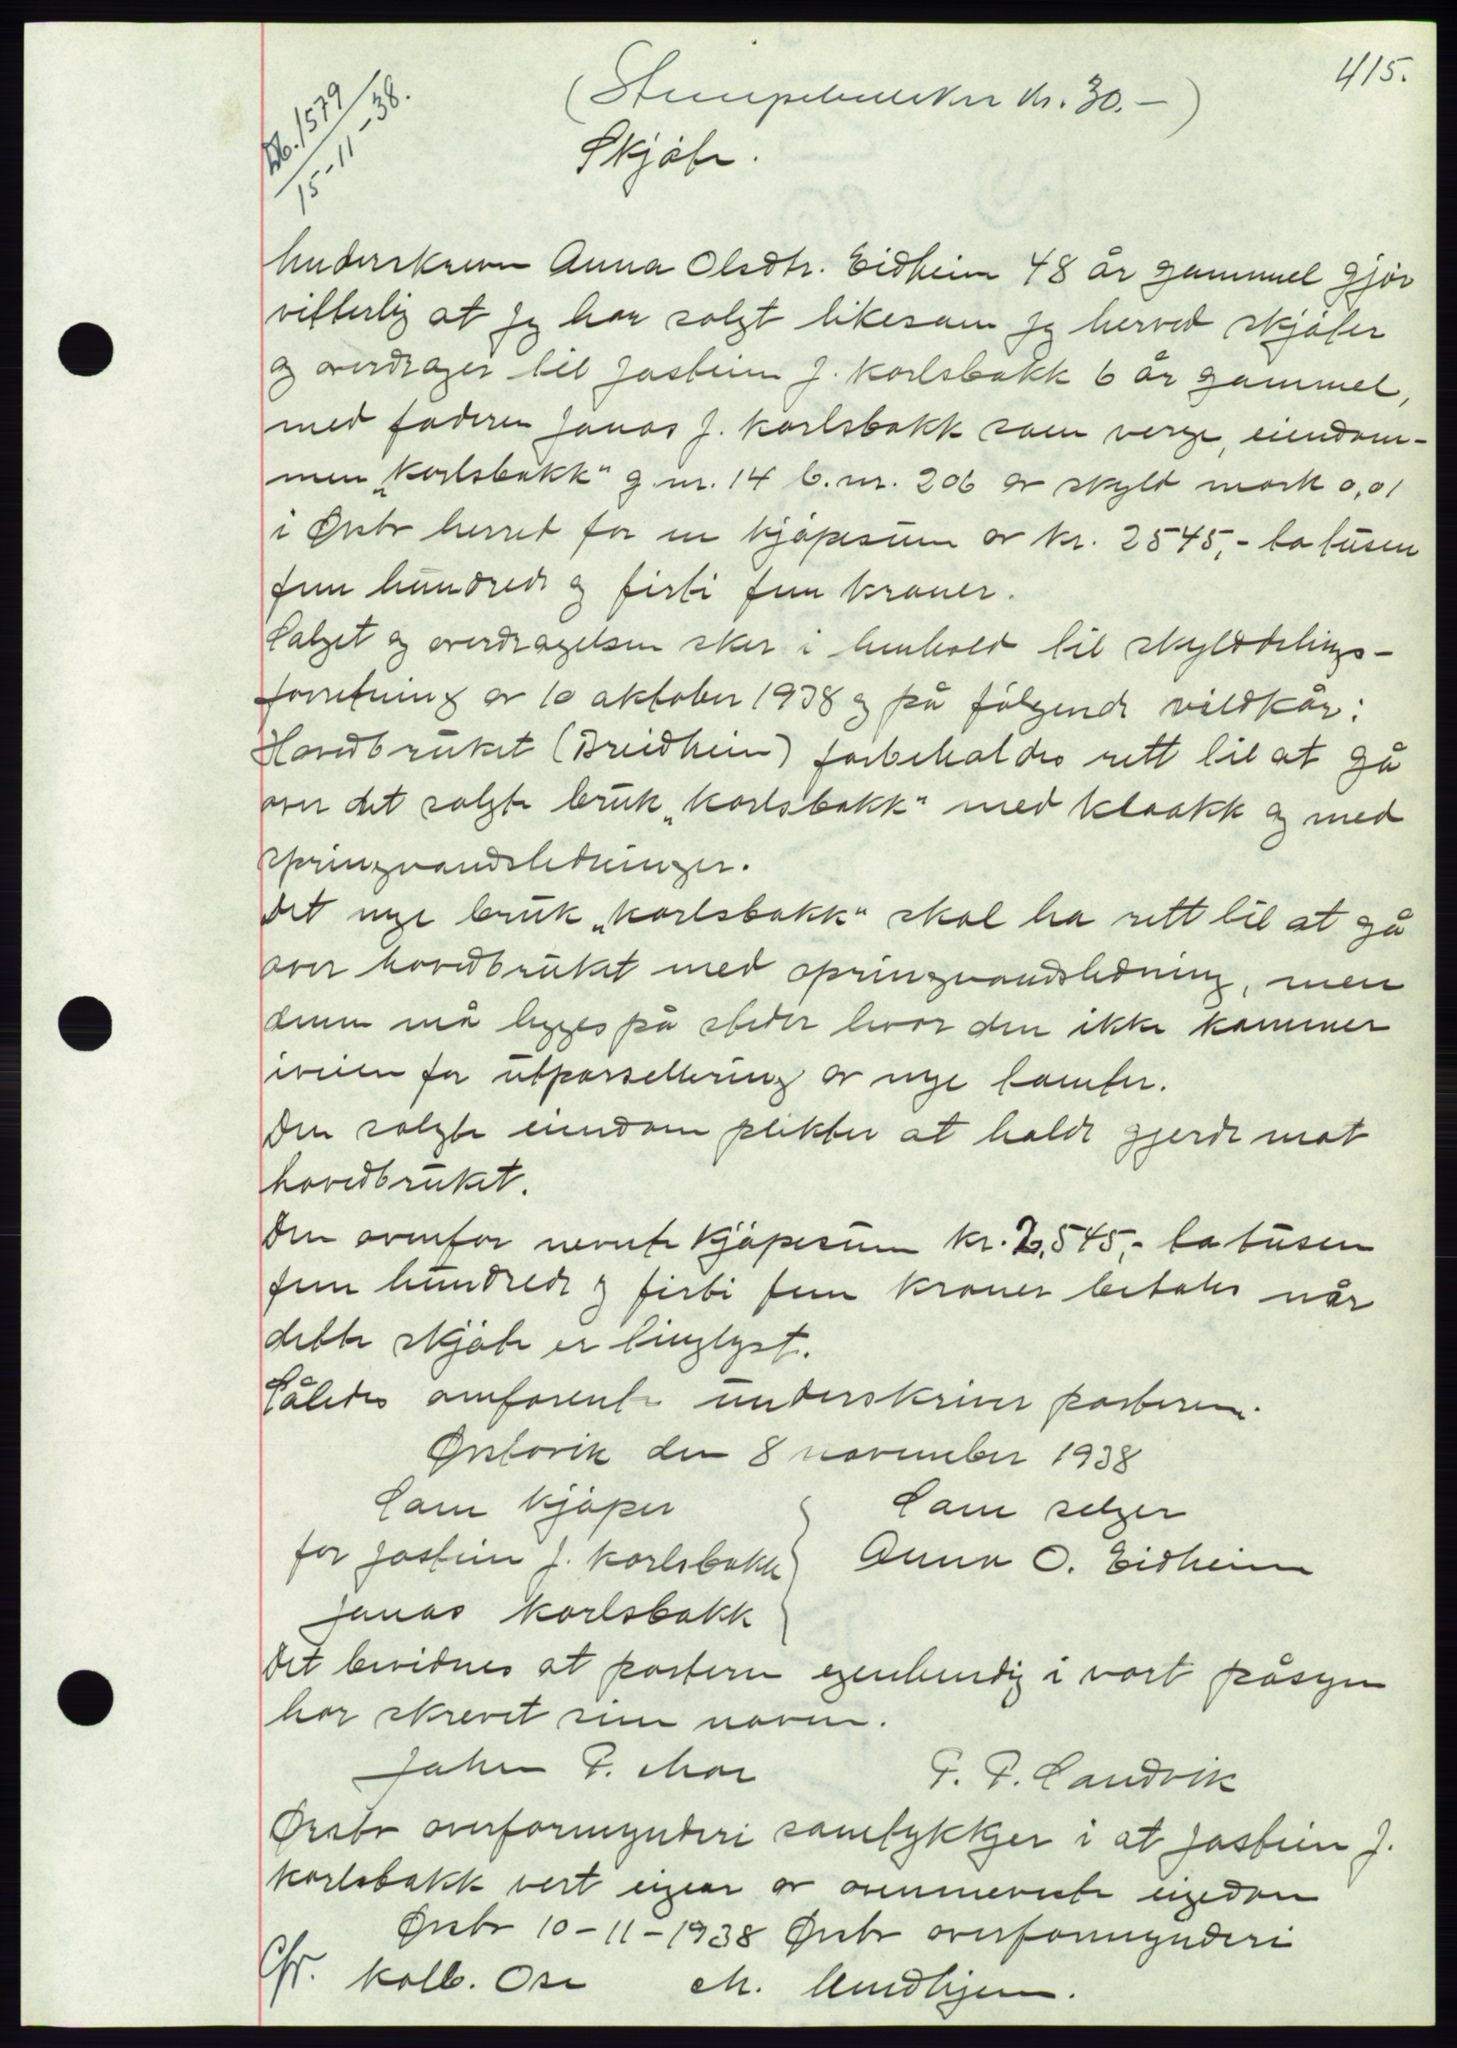 415.
Db. 1579
15-11-38.
(Stempelmerker kr. 30.-)
Skjøte.
Underskreven Anna Olsdtr. Eidheim 48 år gammel gjør
vitterlig at jeg har solgt likesom jeg herved skjøter
og overdrager til Jostein J. Karlsbakk 6 år gammel,
med faderen Jonas J. Karlsbakk som verge, eiendom-
men „Karlsbakk" g.nr. 14 b.nr. 206 av skyld mark 0,01
i Ørsta herred for en kjøpesum av kr. 2545,- to tusen
fem hundrede og firti fem kroner.
Salget og overdragelsen sker i henhold til skylddelings-
forretning av 10 oktober 1938 og på følgende vilkår:
Hovedbruket (Breidheim) forbeholdes rett til at gå
over det solgte bruk „Karlsbakk" med kloakk og med
springvandsledninger.
Det nye bruk „Karlsbakk" skal ha rett til at gå
over hovedbruket med springvandsledning, men
denne må legges på steder hvor den ikke kommer
iveien for utparsellering av nye tomter.
Den solgte eiendom plikter at holde gjerde mot
hovedbruket.
Den ovenfor nevnte kjøpesum kr. 2,545,- to tusen
fem hundrede og firti fem kroner betales når
dette skjøte er tinglyst.
Således omforente underskriver parterne.
Ørstavik den 8 november 1938
Som kjøper
for Jostein J. Karlsbakk
Jonas Karlsbakk
Som selger
Anna O. Eidheim
Det bevidnes at parterne egenhendig i vort påsyn
har skrevet sine navne.
Johan P. Moe
P. P. Sandvik
Ørsta overformynderi samtykkjer i at Jostein J.
Karlsbakk vert eigar av ovennevnte eigedom
Ørsta 10-11-1938 Ørsta overformynderi
Kolb. Ose M. Mundhjem.